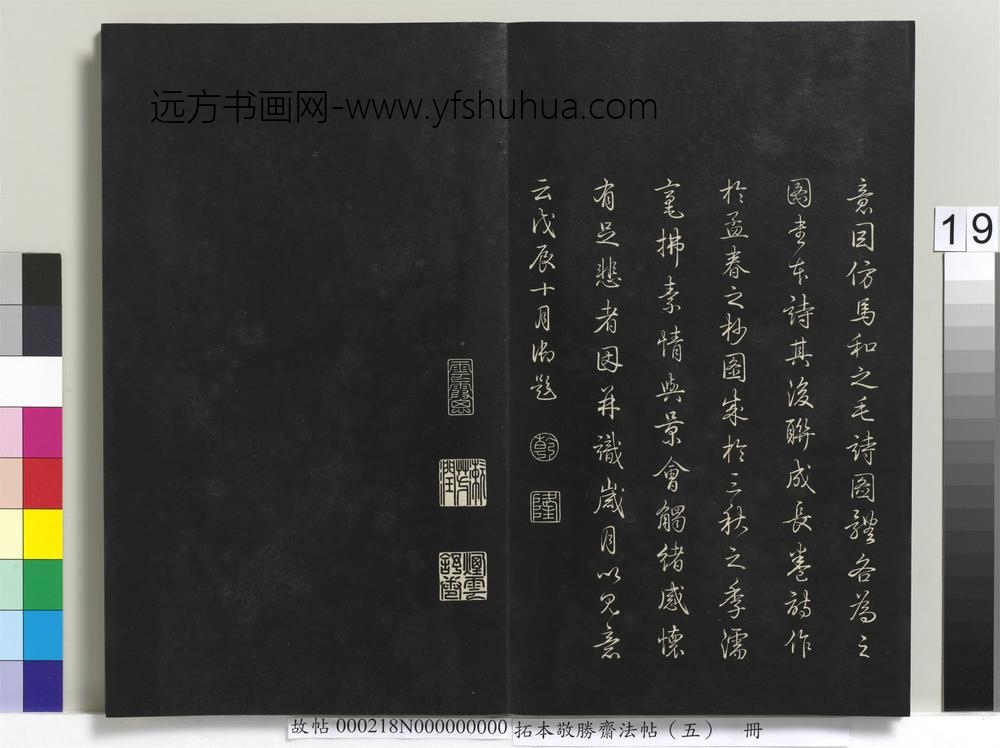 远方书画网-www.yfshuhua.com
意因仿馬和之毛詩圖體各為之
圖書本詩其後聯成長卷詩作
於孟春之杪圖成於三秋之季濡
毫拂素情與景會觸緒感懷
有足悲者因並識歲月以見意
云戊辰十月御題
乾
隆
煙雲
19
故帖000218N000000000 拓本敬勝齋法帖（五） 冊